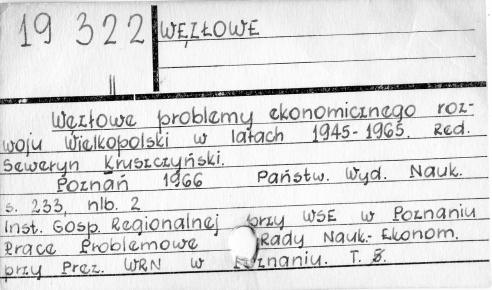 19 322 WĘZŁOWE
Węzłowe problemy ekonomicznego roz-
woju Wielkopolski w latach 1945-1965. Red.
Seweryn Kruszczyński.
Poznań 1966 Państw. Wyd. Nauk.
s. 233, nlb. 2
Inst. Gosp. Regionalnej przy WSE w Poznaniu
Prace Problemowe Rady Nauk.- Ekonom.
przy Prez. WRN w Poznaniu. T. 8.